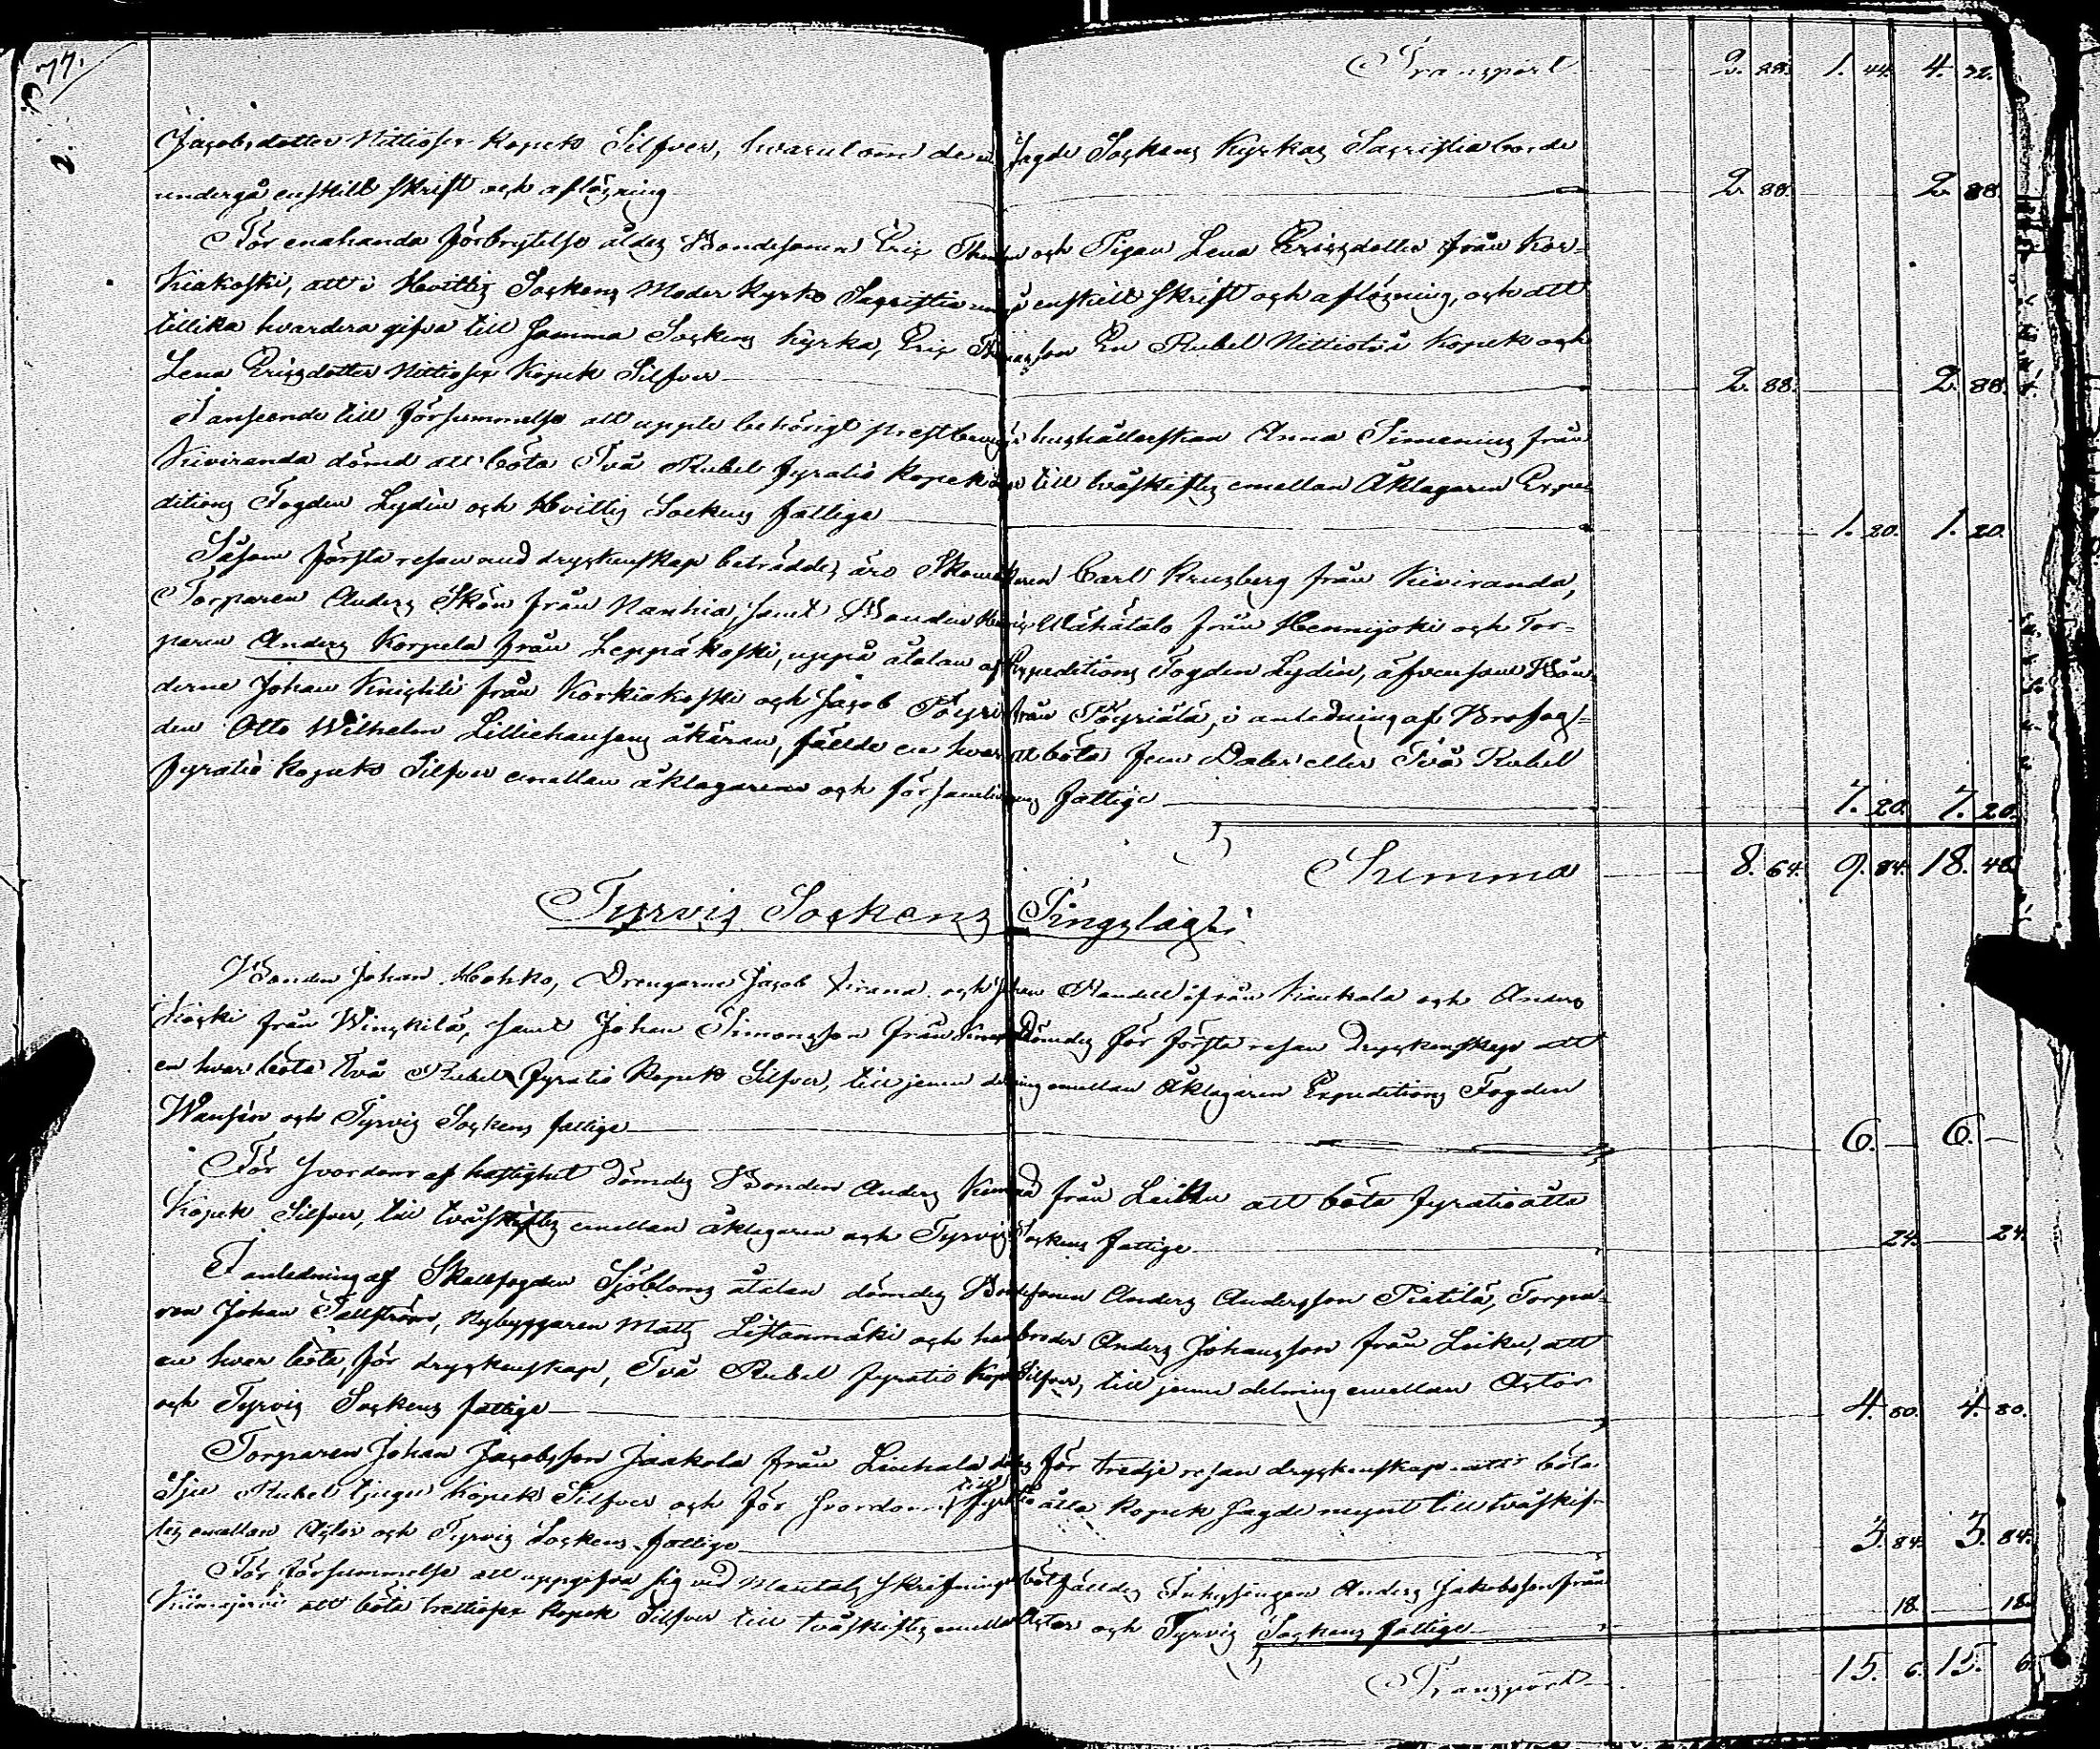 77.
2.
Transport 2. 88. 1. 44. 4. 32.
Jacobsdotter Nittiosex kopek Silfver, hvarutom de i sagde Sockens Kyrkas Sacristia borde
undergå enskilt skrift och aflösning 2. 88. 2. 88
För enahanda förbrytelse ålades Bondesonen Eric Thomasson och Pigan Lena Ericsdotter från Kor-
kiakoski, att i Hvittis Sockens Moder Kyrko Sacristia undergå enskilt skrift och aflösning, och att
tillika hvardera gifva till samma Sockens kyrka, Eric Thomasson En Rubel Nittiotvå Kopek och
Lena Ericsdotter Nittiosex Kopek Silfver 2. 88. 2. 88.
I anseende till försummelse att uppte behörigt prestbevis hushållerskan Anna Simenius från
Kiviranda dömd att böta Två Rubel fyratio kopek till tvåskiftes emellan Åklagaren Expe-
ditions Fogden Lydén och Hvittis Sockens fattige 1. 20. 1. 20.
Såsom första resan med dryckenskap beträdde, äro Skomakaren Carl Kruzberg från Kiviranda,
Torparen Anders Skön från Nanhia, samt Bonden Henric Mähätalo från Hennijoki och Tor-
paren Anders Korpela från Leppäkoski, uppå åtalan af Expeditions Fogden Lydén, äfvensom Bön-
derne Johan Knichti från Korkiakoski och Jacob Pöyri från Pöyriälä, i anledning af Brofog-
den Otto Wilhelm Lilliehausens åkäran, fällde en hvar att böta fem Daler eller Två Rubel
fyratio kopek Silfver emellan åklagarene och församlingens fattige 7. 20. 7. 20.
Summa 8. 64. 9. 84. 18. 48.
Tyrvis Sockens Tingslag:
Bonden Johan Hohko, Drengarne Jacob Kirana och Johan Randell från Kaukola och Anders
Koski från Winckilä, samt Johan Simonsson från dömdes för första resan dryckenskap att
en hvar böta Två Rubel fyratio Kopek Silfver, till jemn delning emellan Åklagaren Expeditions Fogden
Wansén och Tyrvis Sockens fattige 6. — 6. —
För svordom af hastighet dömdes Bonden Anders från Leikku att böta fyratioåtta
Kopek Silfver, till tvåskiftes emellan åklagaren och Tyrvis Sockens fattige 24. 24.
I anledning af Skallfogden Sjöbloms åtalan dömdes Bondesonen Anders Andersson Pietilä, Torpa-
ren Johan Tallström, Nybyggaren Matts Listanmäki och hans broder Anders Johansson från Leiku, att
en hvar böta, för dryckenskap, Två Rubel fyratio Kopek Silfver, till jemn delning emellan Actor
och Tyrvis Sockens fattige 4. 80. 4. 80.
Torparen Johan Jacobsson Jaakola från Liuhala dömdes för tredje resan dryckenskap att böta
Sju Rubel tjugu kopek Silfver och för svordom fyratioåtta kopek sagde mynt till tvåskif-
tes emellan Actor och Tyrvis Sockens fattige 3. 84. 3. 84.
För försummelse att uppgifva sig vid Mantals skrifningen bötfälldes Inhysingen Anders Jakobsson från
Kiimajärvi att böta trettiosex kopek Silfver till tvåskiftes emellan Actor och Tyrvis Sockens fattige 18. 18.
Transport 15. 6. 15. 6.